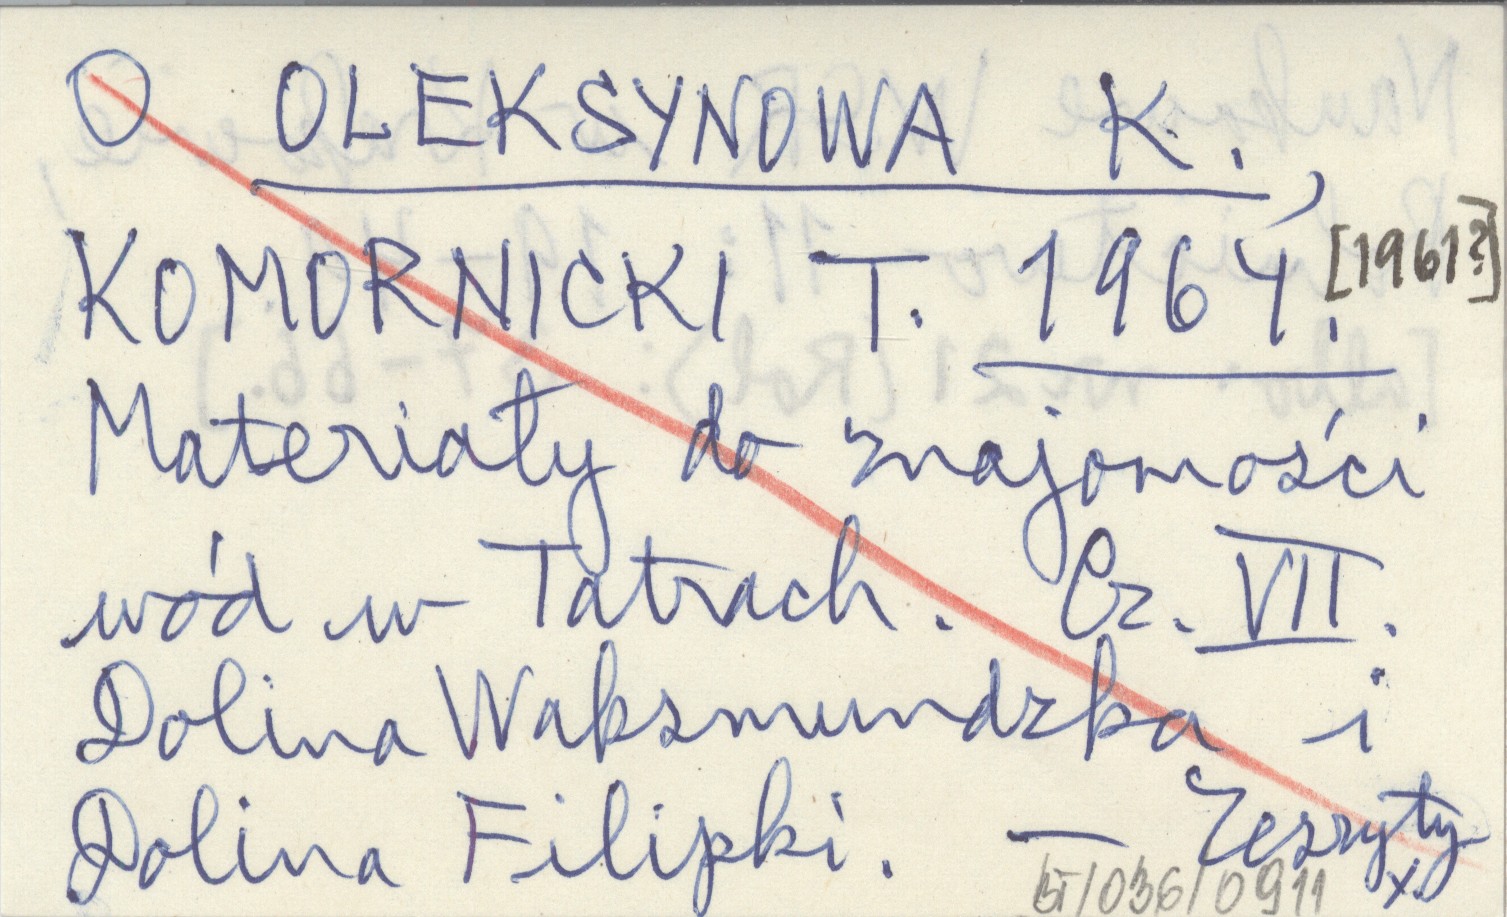 O OLEKSYNOWA K.,
KOMORNICKI T. 1964. [1961?]
Materiały do znajomości
wód w Tatrach. Cz. VII.
Dolina Waksmundzka i
Dolina Filipki. — Zeszyty
/036/0911